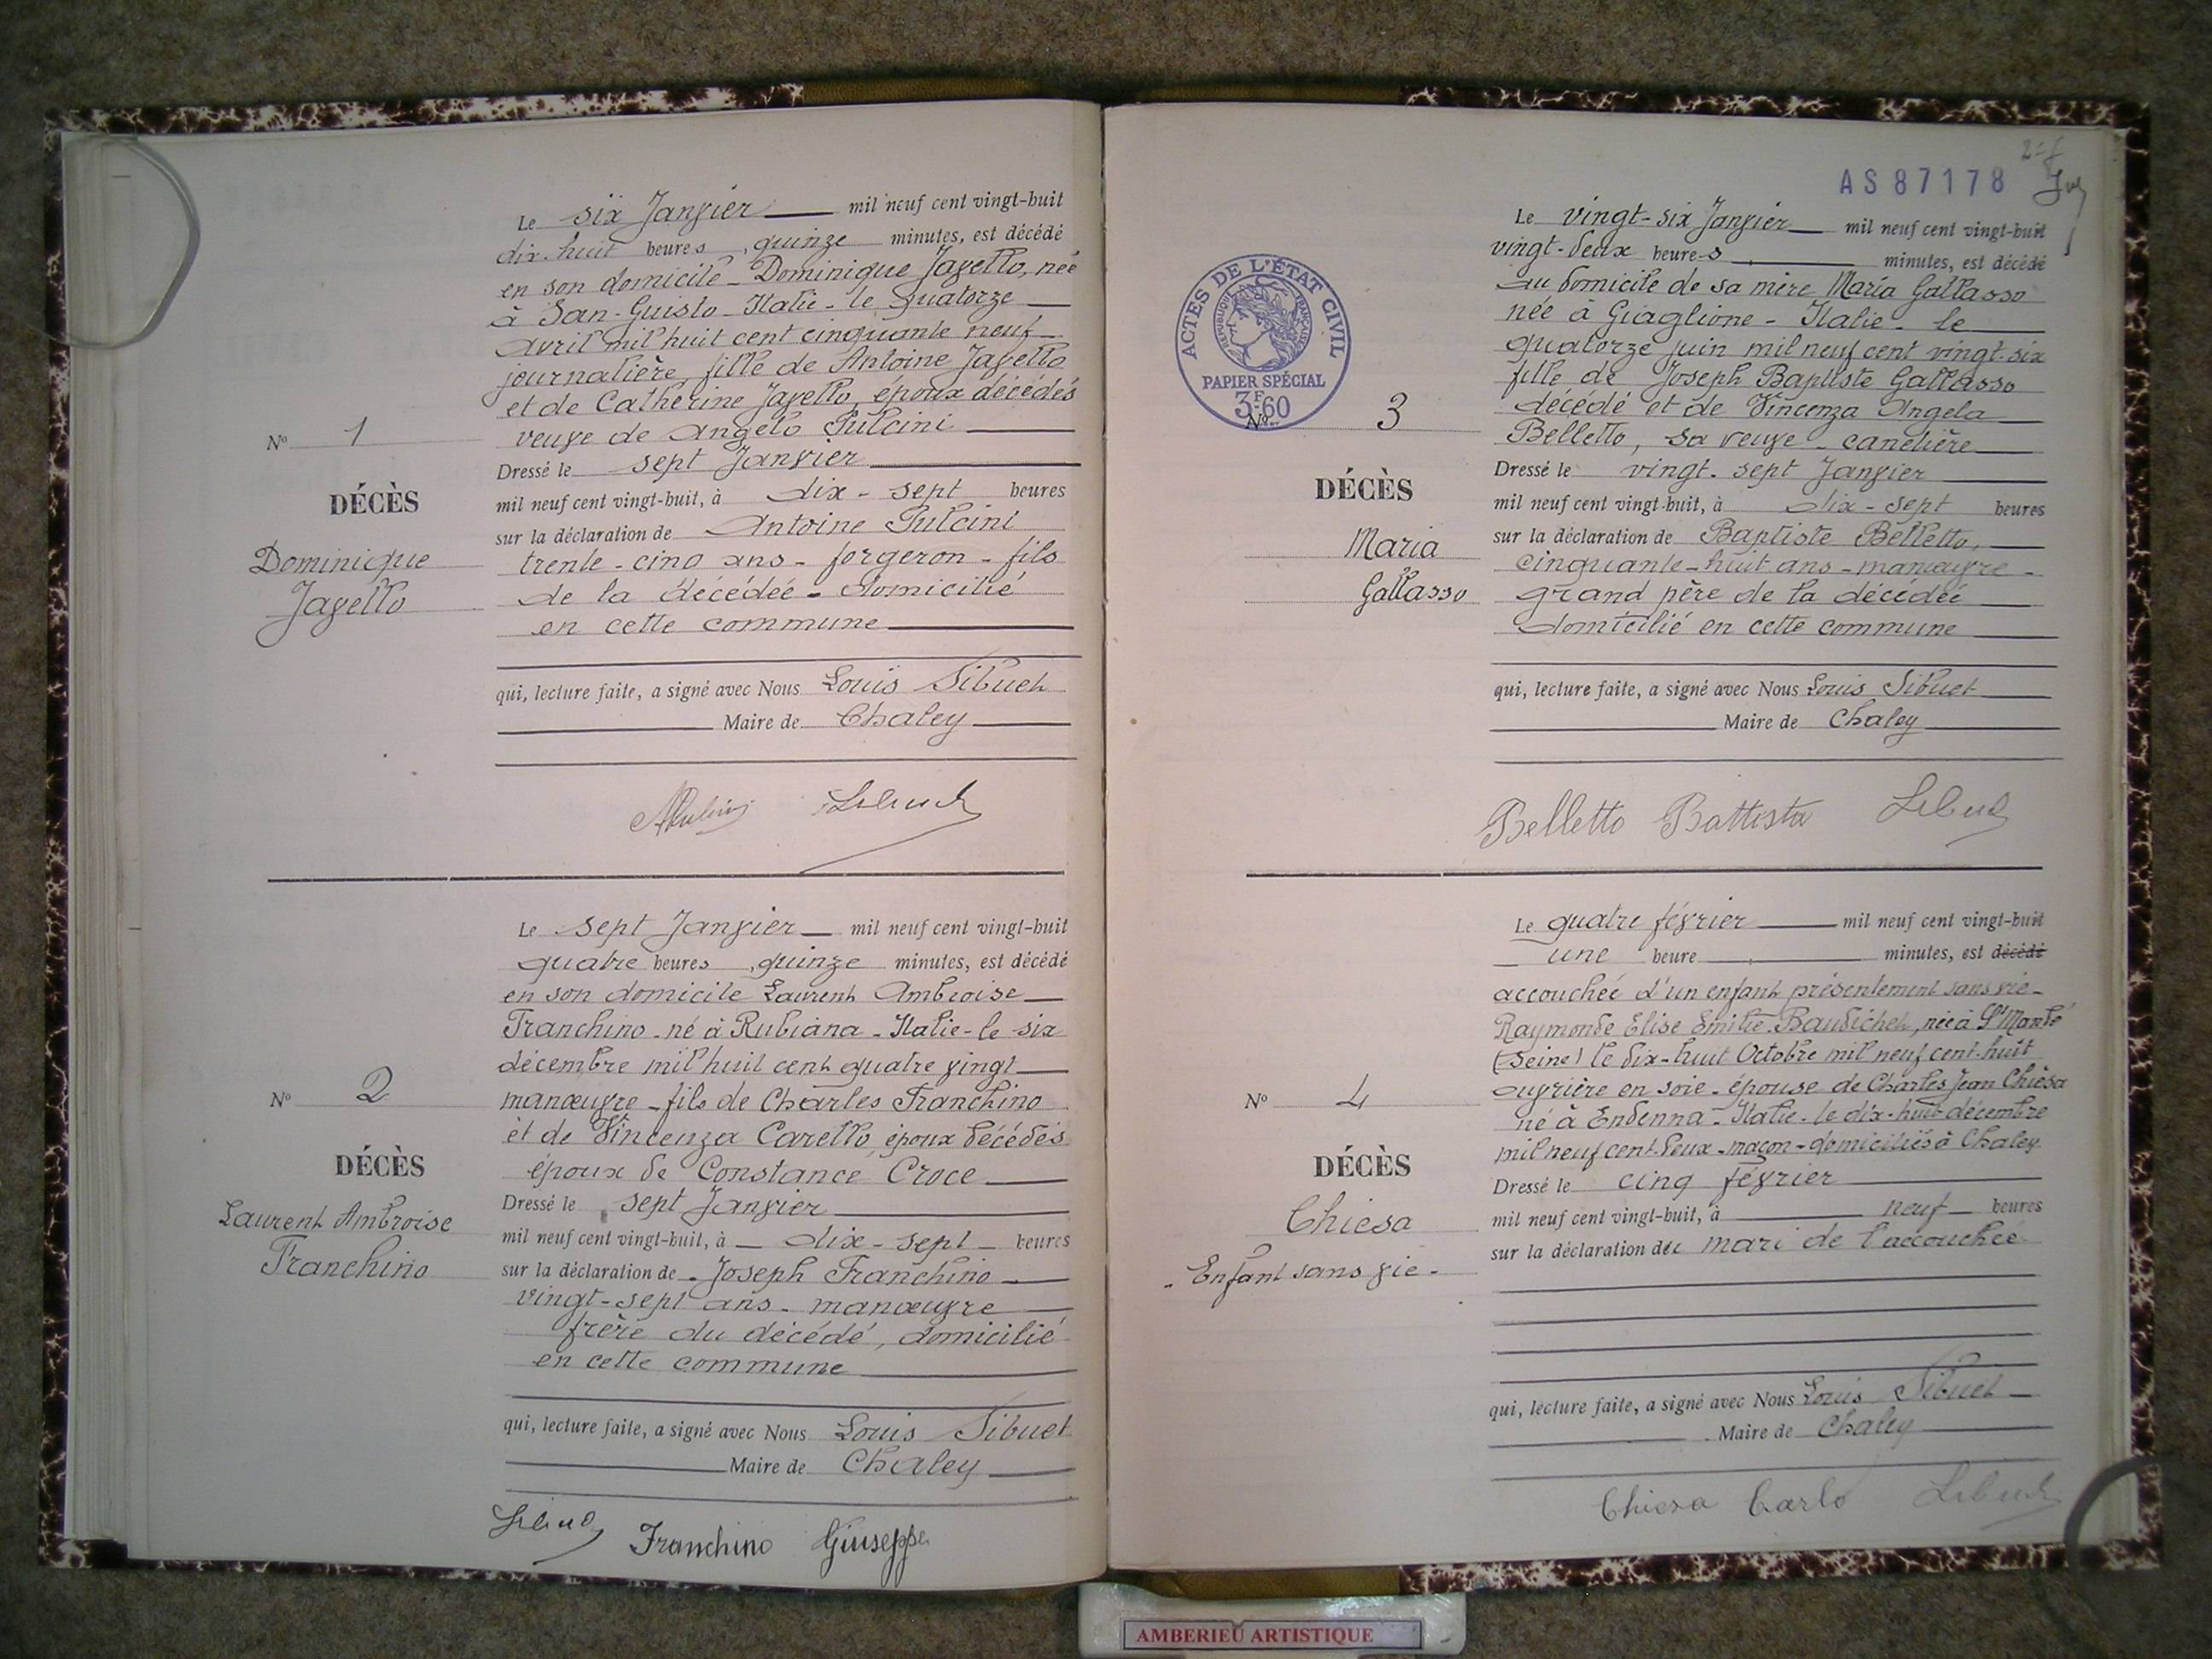 Le six Janvier mil neuf cent vingt-huit
dix-huit heures, quinze minutes, est décédé
en son domicile - Dominique Javello, née
à San-Guisto - Italie - le quatorze
avril mil huit cent cinquante neuf
journalière, fille de Antoine Javello
et de Catherine Javello, époux décédés
veuve de Angelo Pulcini
N° 1
Dressé le sept Janvier
DÉCÈS
mil neuf cent vingt-huit, à dix-sept heures
sur la déclaration de Antoine Pulcini
Dominique
trente-cinq ans - forgeron - fils
Javello
de la décédée - domicilié
en cette commune
qui, lecture faite, a signé avec Nous Louis Sibuet
Maire de Chaley
Sibuet
Le sept Janvier mil neuf cent vingt-huit
quatre heures, quinze minutes, est décédé
en son domicile Laurent Ambroise
Franchino - né à Rubiana - Italie - le six
décembre mil huit cent quatre vingt
N° 2
manœuvre - fils de Charles Franchino
et de Vincenza Carello, époux décédés
DÉCÈS
époux de Constance Croce
Dressé le sept Janvier
Laurent Ambroise
mil neuf cent vingt-huit, à dix-sept heures
Franchino
sur la déclaration de Joseph Franchino
vingt-sept ans - manœuvre
frère du décédé, domicilié
en cette commune
qui, lecture faite, a signé avec Nous Louis Sibuet
Maire de Chaley
Sibuet Franchino Giuseppe
AS 87178
ACTES DE L'ÉTAT CIVIL
RÉPUBLIQUE FRANÇAISE
PAPIER SPÉCIAL
3F60
Le vingt-six Janvier mil neuf cent vingt-huit
vingt-deux heures minutes, est décédé
au domicile de sa mère Maria Gallasso
née à Giaglione - Italie - le
quatorze juin mil neuf cent vingt-six
fille de Joseph Baptiste Gallasso
N° 3
décédé et de Vincenza Angela
Belletto, sa veuve - canetière
Dressé le vingt-sept Janvier
DÉCÈS
mil neuf cent vingt-huit, à dix-sept heures
Maria
sur la déclaration de Baptiste Belletto,
cinquante-huit ans - manœuvre -
Gallasso
grand père de la décédée
domicilié en cette commune
qui, lecture faite, a signé avec Nous Louis Sibuet
Maire de Chaley
Belletto Battista Sibuet
Le quatre février mil neuf cent vingt-huit
une heure minutes, est décédé
accouchée d'un enfant présentement sans vie -
Raymonde Elise Emilie Baudichet, née à St Mandé
(Seine) le dix-huit Octobre mil neuf cent-huit
ouvrière en soie - épouse de Charles Jean Chiesa
N° 4
né à Endenna - Italie - le dix-huit décembre
mil neuf cent deux - maçon - domiciliés à Chaley
DÉCÈS
Dressé le cinq février
Chiesa
mil neuf cent vingt-huit, à neuf heures
- Enfant sans vie -
sur la déclaration du mari de l'accouchée
qui, lecture faite, a signé avec Nous Louis Sibuet
Maire de Chaley
Chiesa Carlo Sibuet
AMBERIEU ARTISTIQUE